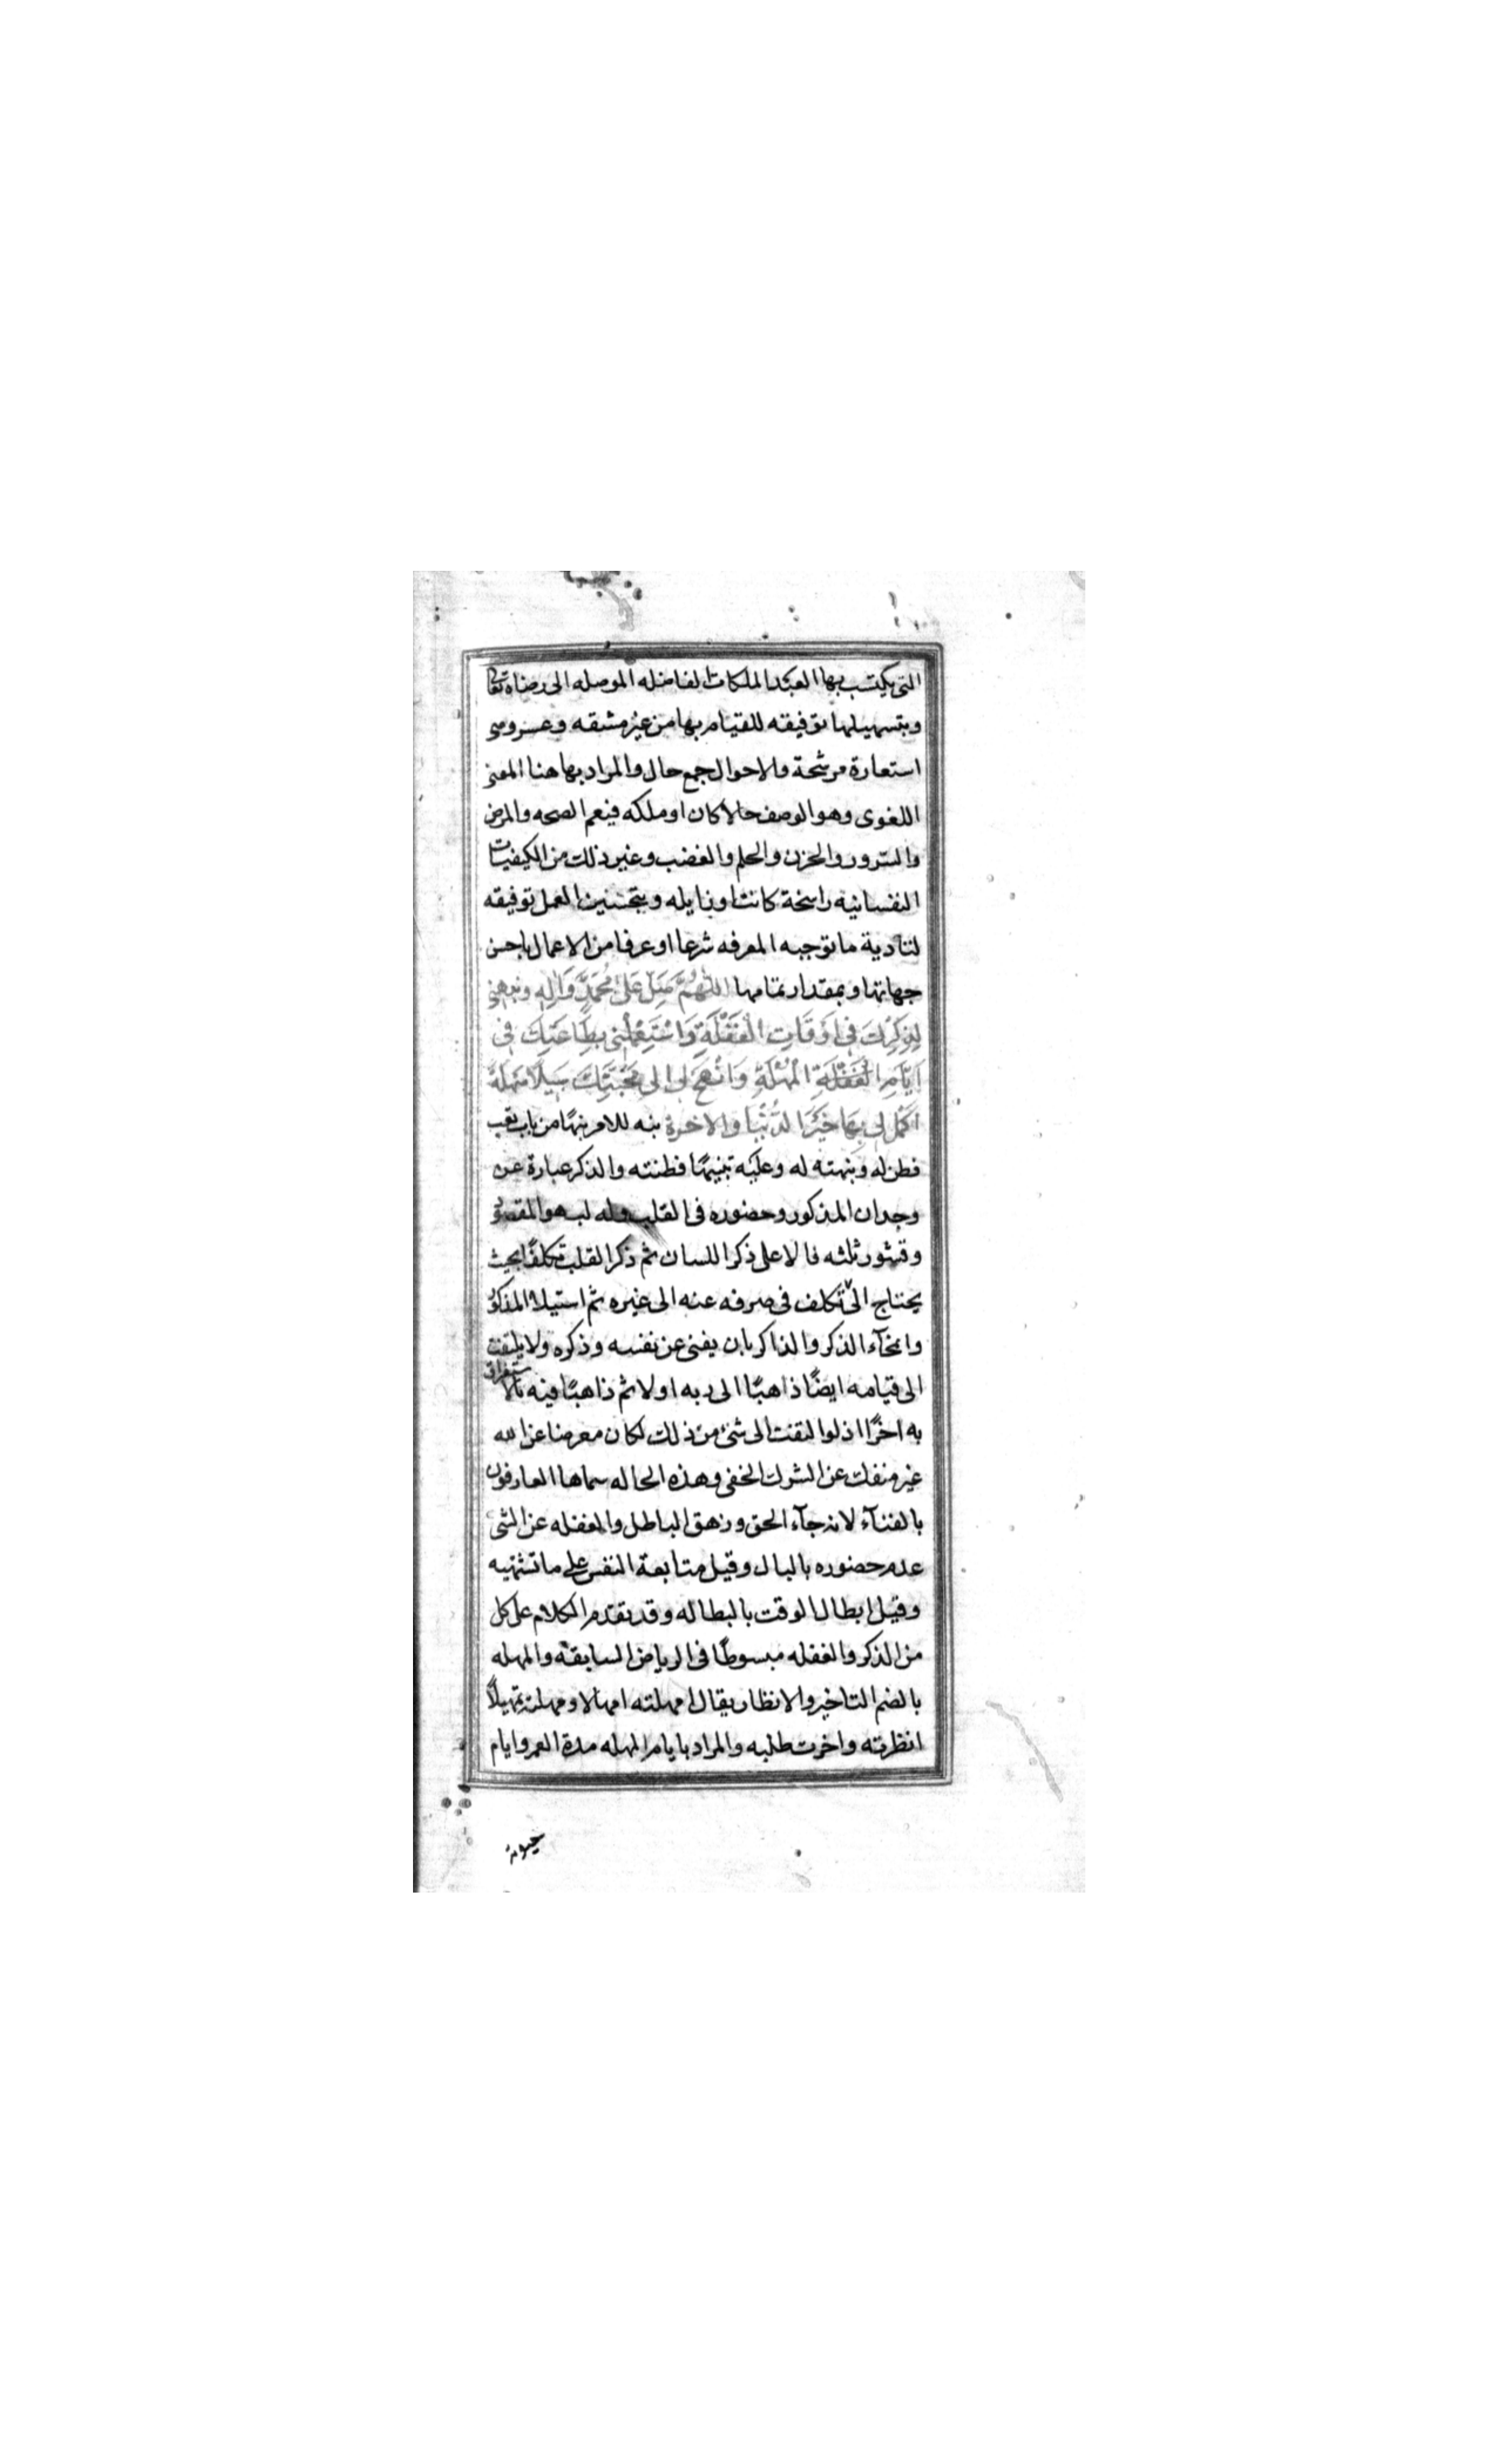 التى يكتسب بها العبد الملكات الفاضله الموصله الى رضاه تعالى
وبتسهيلها توفيقه للقيام بها من غير مشقه وعسر وهى
استعارة مرشحة والاحوال جمع حال والمراد بها هنا المعنى
اللغوى وهو الوصف حالا كان او ملكه فيعم الصحه والمرض
والسرور والحزن والحلم والغضب وغير ذلك من الكيفيات
النفسانيه راسخة كانت او زايله وبتحسين العمل توفيقه
لتادية ما توجبه المعرفه شرعا او عرفا من الاعمال باحسن
جهاتها وبمقدار تمامها اللّهُمَّ صَلِّ عَلى مُحَمَّدٍ وَاٰلِهِ ونبهنى
لِذِكْرِكَ فى اَوْقَاتِ الْغَفْلَةِ وَاسْتَعْمِلْنى بِطَاعَتِكَ فى
اَيَّامِ الْغَفْلَةِ الْمُهْلَةِ وَانْهَجْ لى الى مَحَبَّتِكَ سَبيلًا سَهْلَةً
اَكْمِلْ لى بِهَا خَيْرَ الدُّنْيَا والاخرة نبه للامر نبهًا من باب تعب
فطن له ونبهته له وعليه تنبيهًا فطنته والذكر عبارة عن
وجدان المذكور وحضوره فى القلب وله لب هو المقصود
وقشور ثلثه فالاعلى ذكر اللسان ثم ذكر القلب تكلفًا بحيث
يحتاج الى تكلف فى صرفه عنه الى غيره ثم استيلاء المذكور
وانمحآء الذكر والذاكر بان يفنى عن نفسه وذكره ولا يلتفت
الى قيامه ايضًا ذاهبًا الى ربه اولا ثم ذاهبًا فيه بالاستغراق
به اخرًا اذ لو التفت الى شئ من ذلك لكان معرضا عن الله
غير منفك عن الشرك الخفى وهذه الحاله سماها العارفون
بالفنآء لانه جآء الحق وزهق الباطل والغفله عن الشئ
عدم حضوره بالبال وقيل متابعة النفس على ما تشتهيه
وقيل ابطال الوقت بالبطاله وقد تقدم الكلام على كل
من الذكر والغفله مبسوطًا فى الرياض السابقه والمهله
بالضم التاخير والانظار يقال امهلته امهالا ومهلته تمهيلًا
انظرته واخرت طلبه والمراد بايام المهله مدة العمر وايام
حيوته